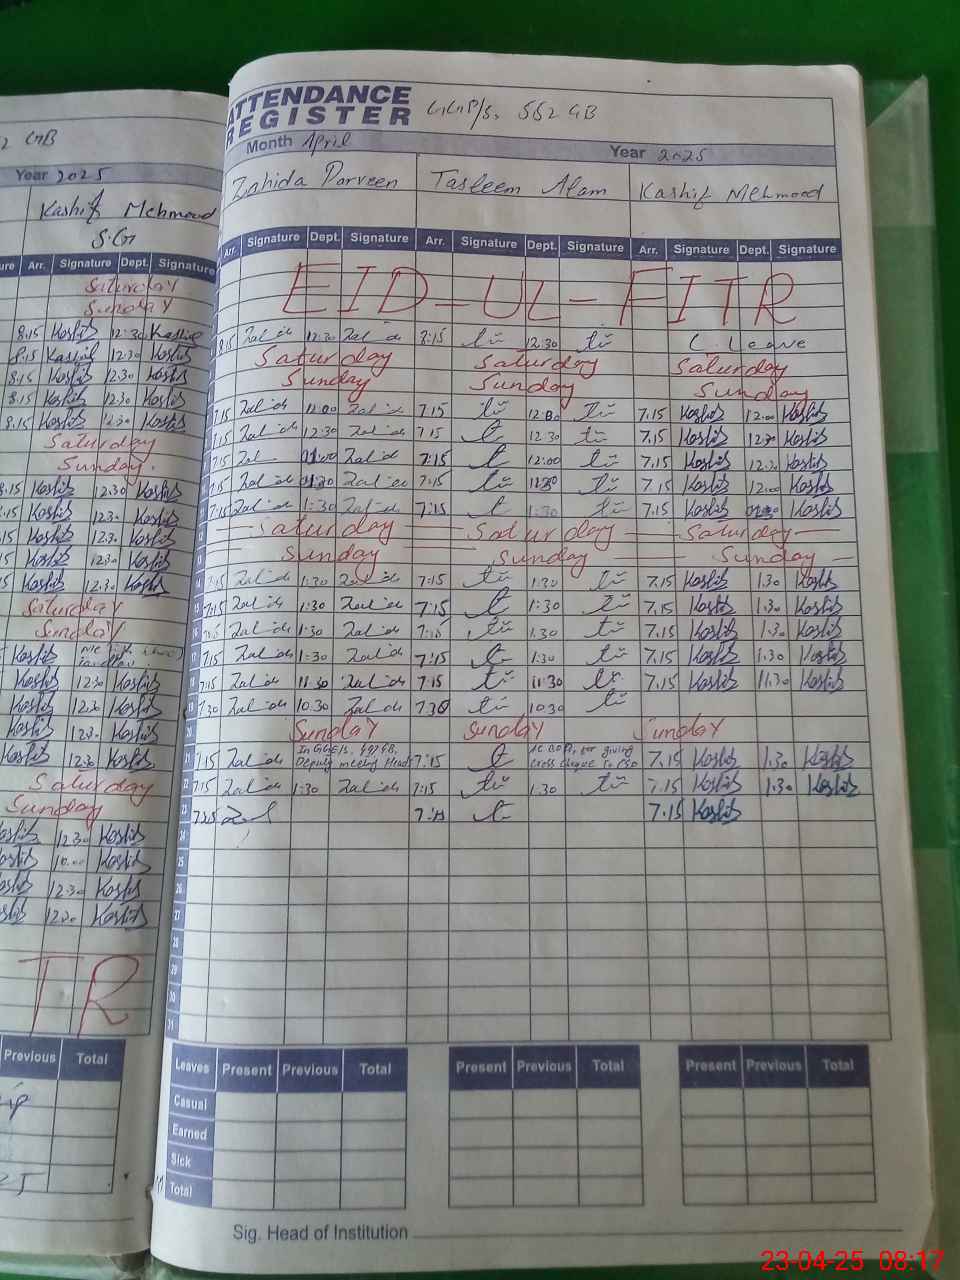 2 GB
Year 2025
Kashif Mehmood
S.G
Arr. Signature Dept. Signature
Saturday
Sunday
8:15 Kashif 12:30 Kashif
8:15 Kashif 12.30 Kashif
8:15 Kashif 12.30 Kashif
8.15 Kashif 12.30 Kashif
8.15 Kashif 12.30 Kashif
Saturday
Sunday.
8.15 Kashif 12.30 Kashif
Kashif 12.30 Kashif
Kashif 12.30 Kashif
Kashif 12.30 Kashif
Kashif 12.30 Kashif
Saturday
Sunday
Kashif
Kashif 12.30 Kashif
Kashif 12.30 Kashif
Kashif 12.30 Kashif
Kashif 12.30 Kashif
Saturday
Sunday
Kashif 12.30 Kashif
Kashif 10.00 Kashif
Kashif 12.30 Kashif
Kashif 12.30 Kashif
TR
Previous Total
ATTENDANCE
REGISTER
GGP/S. 552 GB
Month April Year 2025
Zahida Parveen Tasleem Alam Kashif Mehmood
Arr. Signature Dept. Signature Arr. Signature Dept. Signature Arr. Signature Dept. Signature
EID-UL-FITR
8:15 Zahida 12:30 Zahida 8:15 12.30 C. Leave
Saturday Saturday Saturday
Sunday Sunday Sunday
7.15 Zahida 12:00 Zahida 7.15 12:00 7.15 Kashif 12.00 Kashif
7.15 Zahida 12:30 Zahida 7.15 12.30 7.15 Kashif 12.30 Kashif
7:15 Zahida Zahida 7:15 12:00 7.15 Kashif 12.30 Kashif
7.15 Zahida Zahida 7.15 7.15 Kashif 12.00 Kashif
7:15 Zahida 1:30 Zahida 7:15 1:30 7.15 Kashif Kashif
12 Saturday Saturday Saturday
13 Sunday Sunday Sunday
14 7:15 Zahida 1:30 Zahida 7:15 1.30 7.15 Kashif 1.30 Kashif
15 7:15 Zahida 1:30 Zahida 7:15 1:30 7.15 Kashif 1.30 Kashif
16 7:15 Zahida 1:30 Zahida 7:15 1.30 7.15 Kashif 1.30 Kashif
17 7:15 Zahida 1:30 Zahida 7:15 1:30 7.15 Kashif 1.30 Kashif
18 7:15 Zahida 11:30 Zahida 7:15 11:30 7.15 Kashif 11.30 Kashif
19 7:30 Zahida 10.30 Zahida 7.30 10.30
20 Sunday Sunday Sunday
21 7:15 Zahida In GGE/S. 497 GB. Deputy meeting Head 7:15 giving Cross cheque To PSO 7.15 Kashif 1.30 Kashif
22 7:15 Zahida 1:30 Zahida 7:15 1.30 7.15 Kashif 1.30 Kashif
23 7:15 7:15 7.15 Kashif
24
25
26
27
28
29
30
31
Leaves Present Previous Total Present Previous Total Present Previous Total
Casual
Earned
Sick
Total
Sig. Head of Institution
23-04-25 08:17